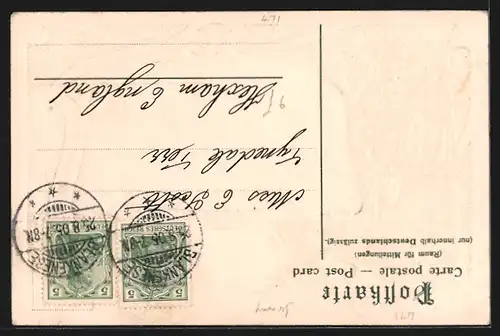 Postkarte
Carte postale — Post card
(Raum für Mitteilungen)
(nur innerhalb Deutschlands zulässig)
Miss E
Tynedale Terr
Hexham England
DEUTSCHES REICH
5 5
5 5
BLANKENESE
25.8.05. 7-8N.